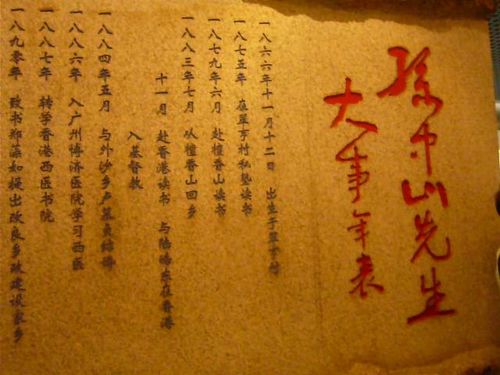 孙中山先生
大事年表
一八六六年十一月十二日 出生于翠亨村
一八七五年 在翠亨村私塾读书
一八七九年六月 赴檀香山读书
一八八三年七月 从檀香山回乡
十一月 赴香港读书 与陆皓东在香港
入基督教
一八八四年五月 与外沙乡卢慕贞结婚
一八八六年 入广州博济医院学习西医
一八八七年 转学香港西医书院
一八九零年 致书郑藻如提出改良乡政建设家乡